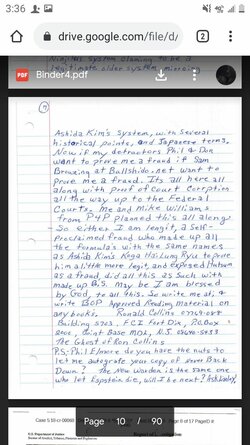 3:36
drive.google.com/file/d/
2
PDF Binder4.pdf
Ninjitsu system claiming to be a
legitimate older system, mirroring
Ashida Kim's System, with several
historical points, and Japanese terms,
Now if my detractors Phil & Don
want to prove me a fraud if Sam
Browning at Bullshido.net want to
prove me a fraud. Its all here all
along with proof of Court Corrption
all the way up to the Federal
Courts. Me and Mike Williams
from P4P planned this all along.
So either I am legit, a Self-
Proclaimed fraud who made up all
the formulas with the same names
as Ashida Kims Koga Hai Lung Ryu to prove
him a little more legit, and exposed Hatsumi
as a fraud, did all this as such with
made up B.S. May be I am blessed
by God, to all this. So write me at: &
write BOP Approved Reading Material on
any books. Ronald Collins
Building 5703, FCI Fort Dix, P.O. Box
2000, Joint Base MDL, N.J. 08640-5433
The Ghost of Ron Collins
P.S: Phil Elmore do you have the nuts to
let me autograph your copy of Never Back
Down? The New Warden is the same one
who let Eppstien die, will I be next?
Page 10 / 90
U.S. Department of Justice